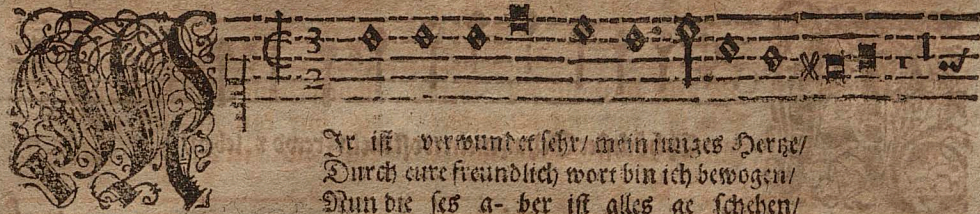 MJr ist verwundet sehr/ mein junges Hertze/
Durch eure freundlich wort bin ich bewogen/
Nun die ses a- ber ist alles ge schehen/